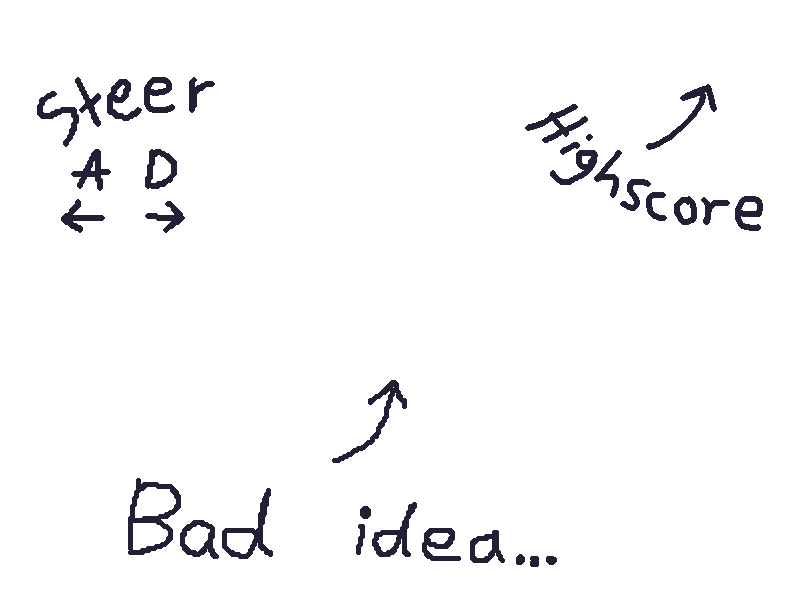 steer
A D
Highscore
Bad idea...